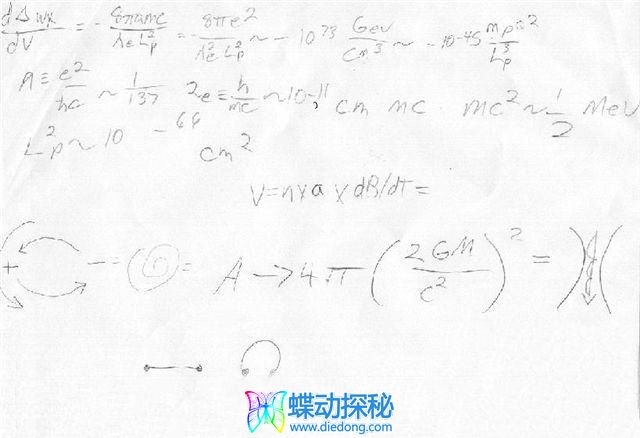 dΔWx/dV = -8παmc/ΛeL²p = -8πe²/Λ²eL²p ~ -10^73 Gev/cm³ ~ -10-45 mpc²/L³p
A ≡ e²/ħc ~ 1/137 2e ≡ ħ/mc ~10-11, cm mc · mc² ~ 1/2 MeV
L²p ~ 10 -66 cm²
V=nxaxdB/dT=
+ - = = A → 4π (2GM/c²)² = )(
蝶动探秘
www.diedong.com